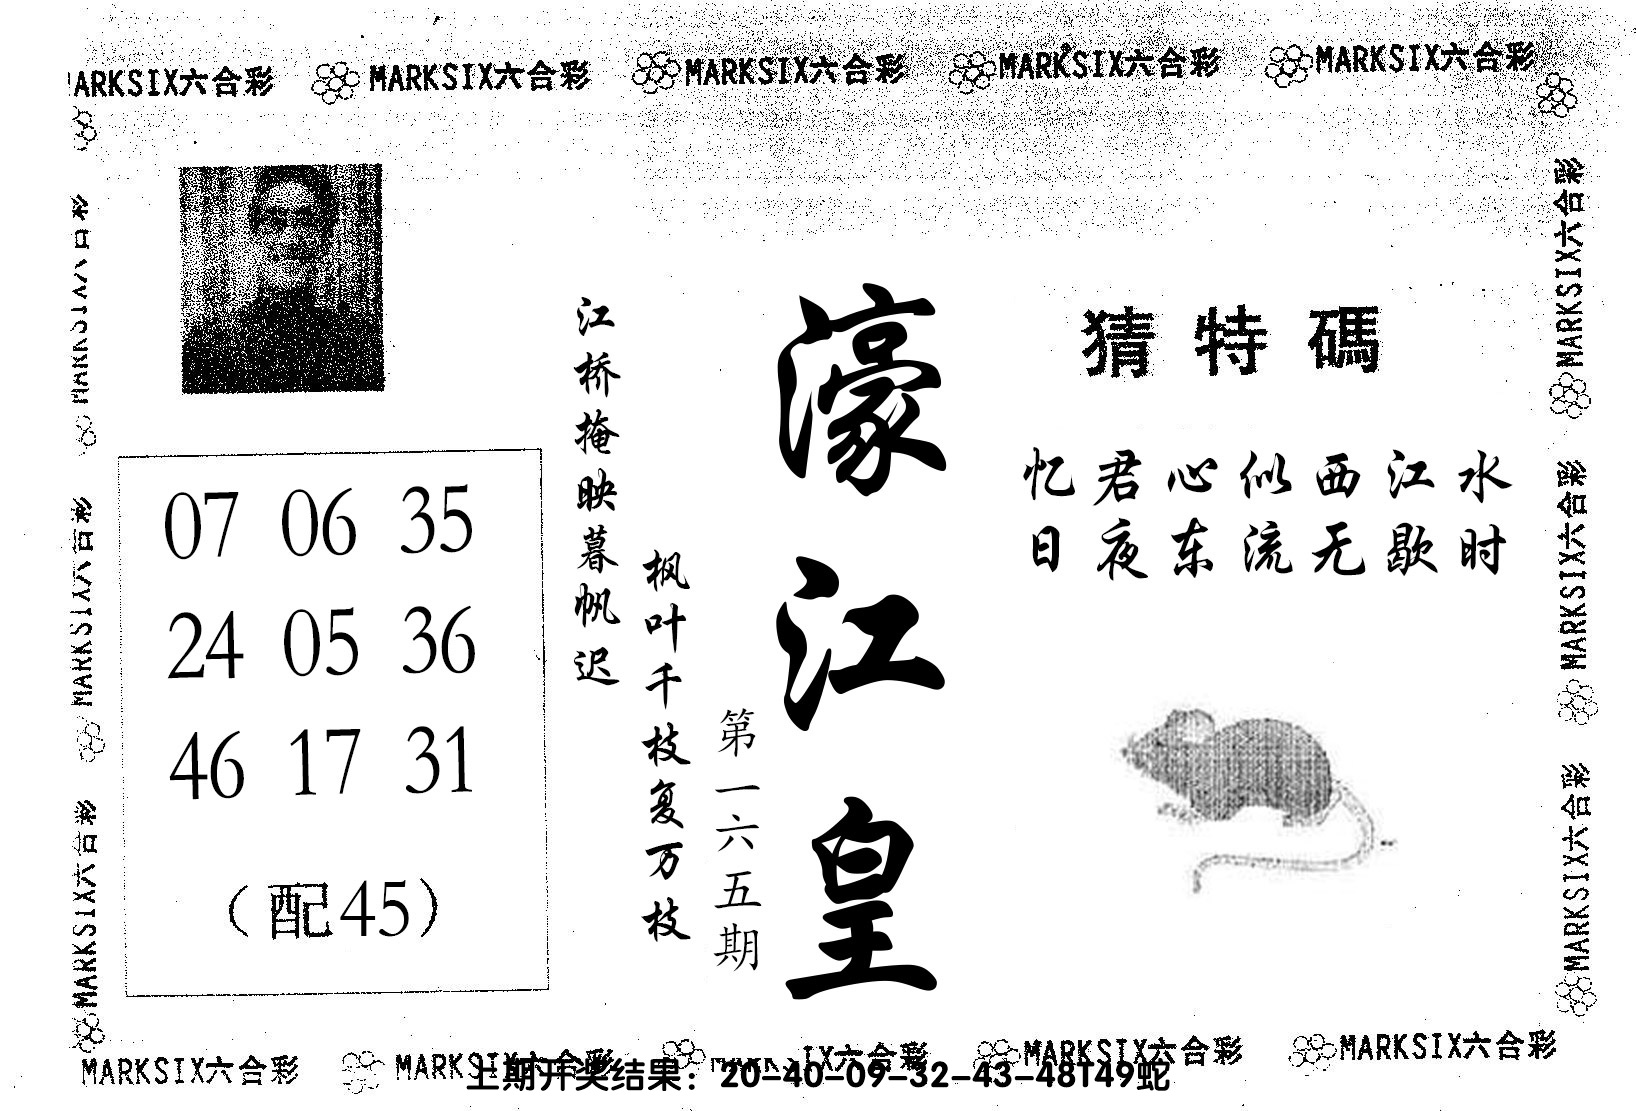 MARKSIX六合彩 MARKSIX六合彩 MARKSIX六合彩 MARKSIX六合彩 MARKSIX六合彩
猜特碼
忆君心似西江水
日夜东流无歇时
濠江皇
第一六五期
枫叶千枝复万枝
江桥掩映暮帆迟
07 06 35
24 05 36
46 17 31
（配45）
MARKSIX六合彩
MARKSIX六合彩
MARKSIX六合彩
MARKSIX六合彩
MARKSIX六合彩
MARKSIX六合彩
MARKSIX六合彩 MARKSIX六合彩 MARKSIX六合彩 MARKSIX六合彩 MARKSIX六合彩
上期开奖结果：20-40-09-32-43-48T49蛇